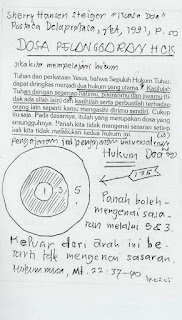 Sherry Hansen Steiger "Kuasa Doa"
Pustaka Delapratasa, Jkt, 1991, p. 50
DOSA PELANGGARAN HUK
Jika kita mempelajari hukum
Tuhan dan perkataan Yesus, bahwa Sepuluh Hukum Tuhan
dapat diringkas menjadi dua hukum yang utama: Kasihilah
Tuhan dengan segenap hatimu, pikiranmu dan jiwamu (ti-
dak ada allah lain) dan kasihilah serta perbuatlah terhadap
orang lain seperti kamu mengasihi dirimu sendiri. Cukup
itu saja. Pada dasarnya, itulah yang merupakan dosa yang
sesungguhnya. Panah kita tidak mengenai sasaran setiap
kali kita tidak melakukan kedua hukum ini.
Pengajaran ini pengajaran universal
Hukum Doa
1 3 5
135
Panah boleh
mengenai sasa-
ran melalui 5&3.
Keluar dari arah ini be-
rarti tdk mengenai sasaran.
Hukum utama, Mt. 22:37-40